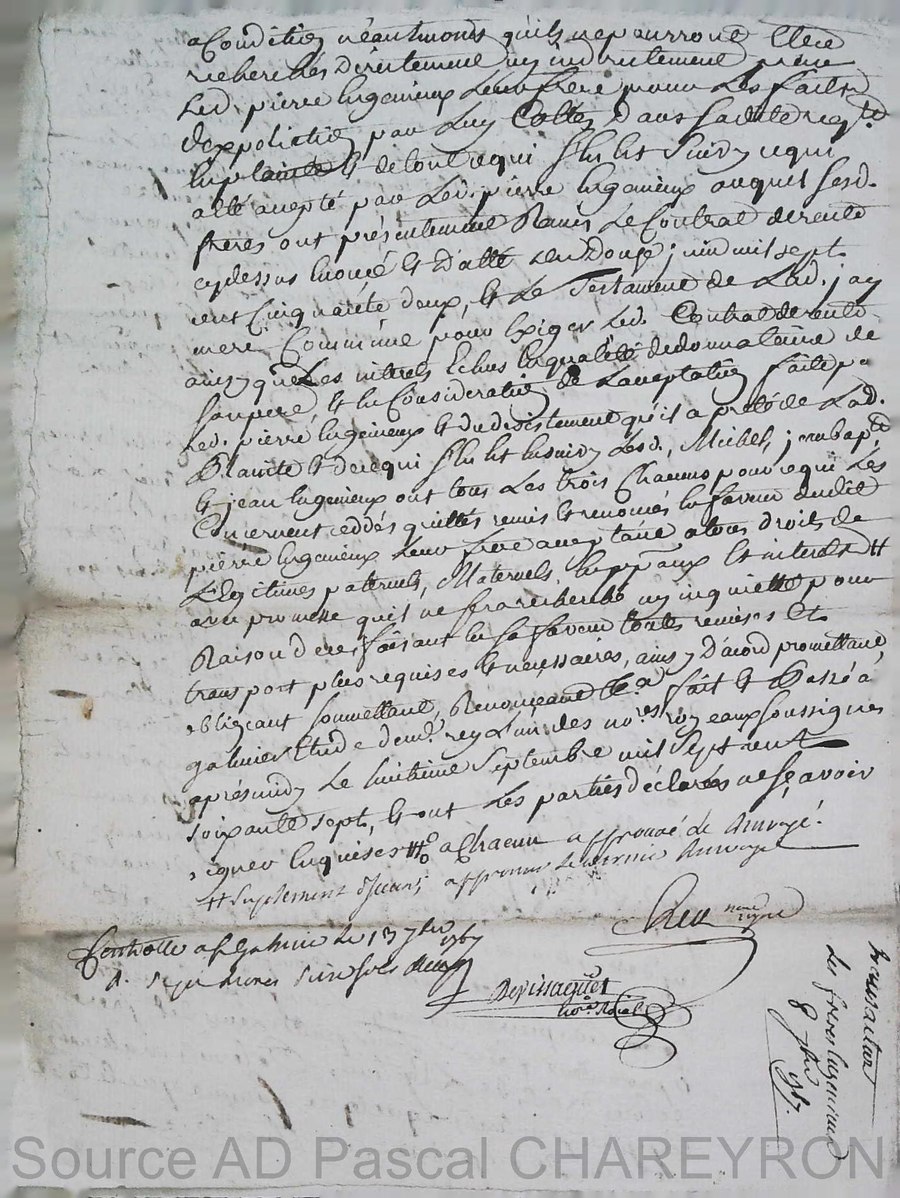 a Condition néantmoins qu'ils ne pourront Etre
recherchés directement ny indirectement par
Led. pierre Ingenieux Leur frere pour Les faits
d'expoliation par Luy Cottés dans sa dite reqte
en plainte Et de tout ce qui S'en Est Suivy ce qui
a Eté accepté par Led. pierre Ingenieux auquel sesd.
freres ont présentement Remis Le Contrat de rente
cydessus Enoncé Et datté du Douze juin mil sept
cent Cinquante deux, Et Le Testament de Lad.
mere Commune pour Exiger Led. Contrat de rente
ainsy que Les interets Echus En qualité de donnataire de
son pere, Et En Consideration de L'acceptation faitte par
Led. pierre Ingenieux Et du desistement qu'il a preté de Lad.
Plainte Et de ce qui S'en Est Ensuivy Lesd. Michel, jean bapte
Et jean Ingenieux ont tous Les trois Chacuns pour ce qui Les
Concernent ceddés quittés remis Et renoncés En faveur dudit
pierre Ingenieux Leur frere acceptant a tous droits de
Legitimes paternels, Maternels, En ppaux Et interets #
avec promesse qu'il ne sera recherché ny inquietté pour
Raison de ce faisant En sa faveur toutes remises Et
transport plus requises Et necessaires, ainsy d'acord promettant,
obligeant soumettant, Renonceant &a fait Et Passé à
galmier Etude de mr rey L'un des nores royeaux soussignes
après midy Le huitieme Septembre mil Sept cent
soixante sept, Et ont Les parties déclarées ne sçavoir
signer Enquises # a Chacun approuvé Le Renvoyé.
# Suplement approuvé Le dernier Renvoyé
Rey nore royal
Controlle a St Galmier le 13 7bre 1767
R. Sept Livres
Devissaguet
nore Roial
transaction
Les freres Ingenieux
8 7bre 1767.
Source AD Pascal CHAREYRON